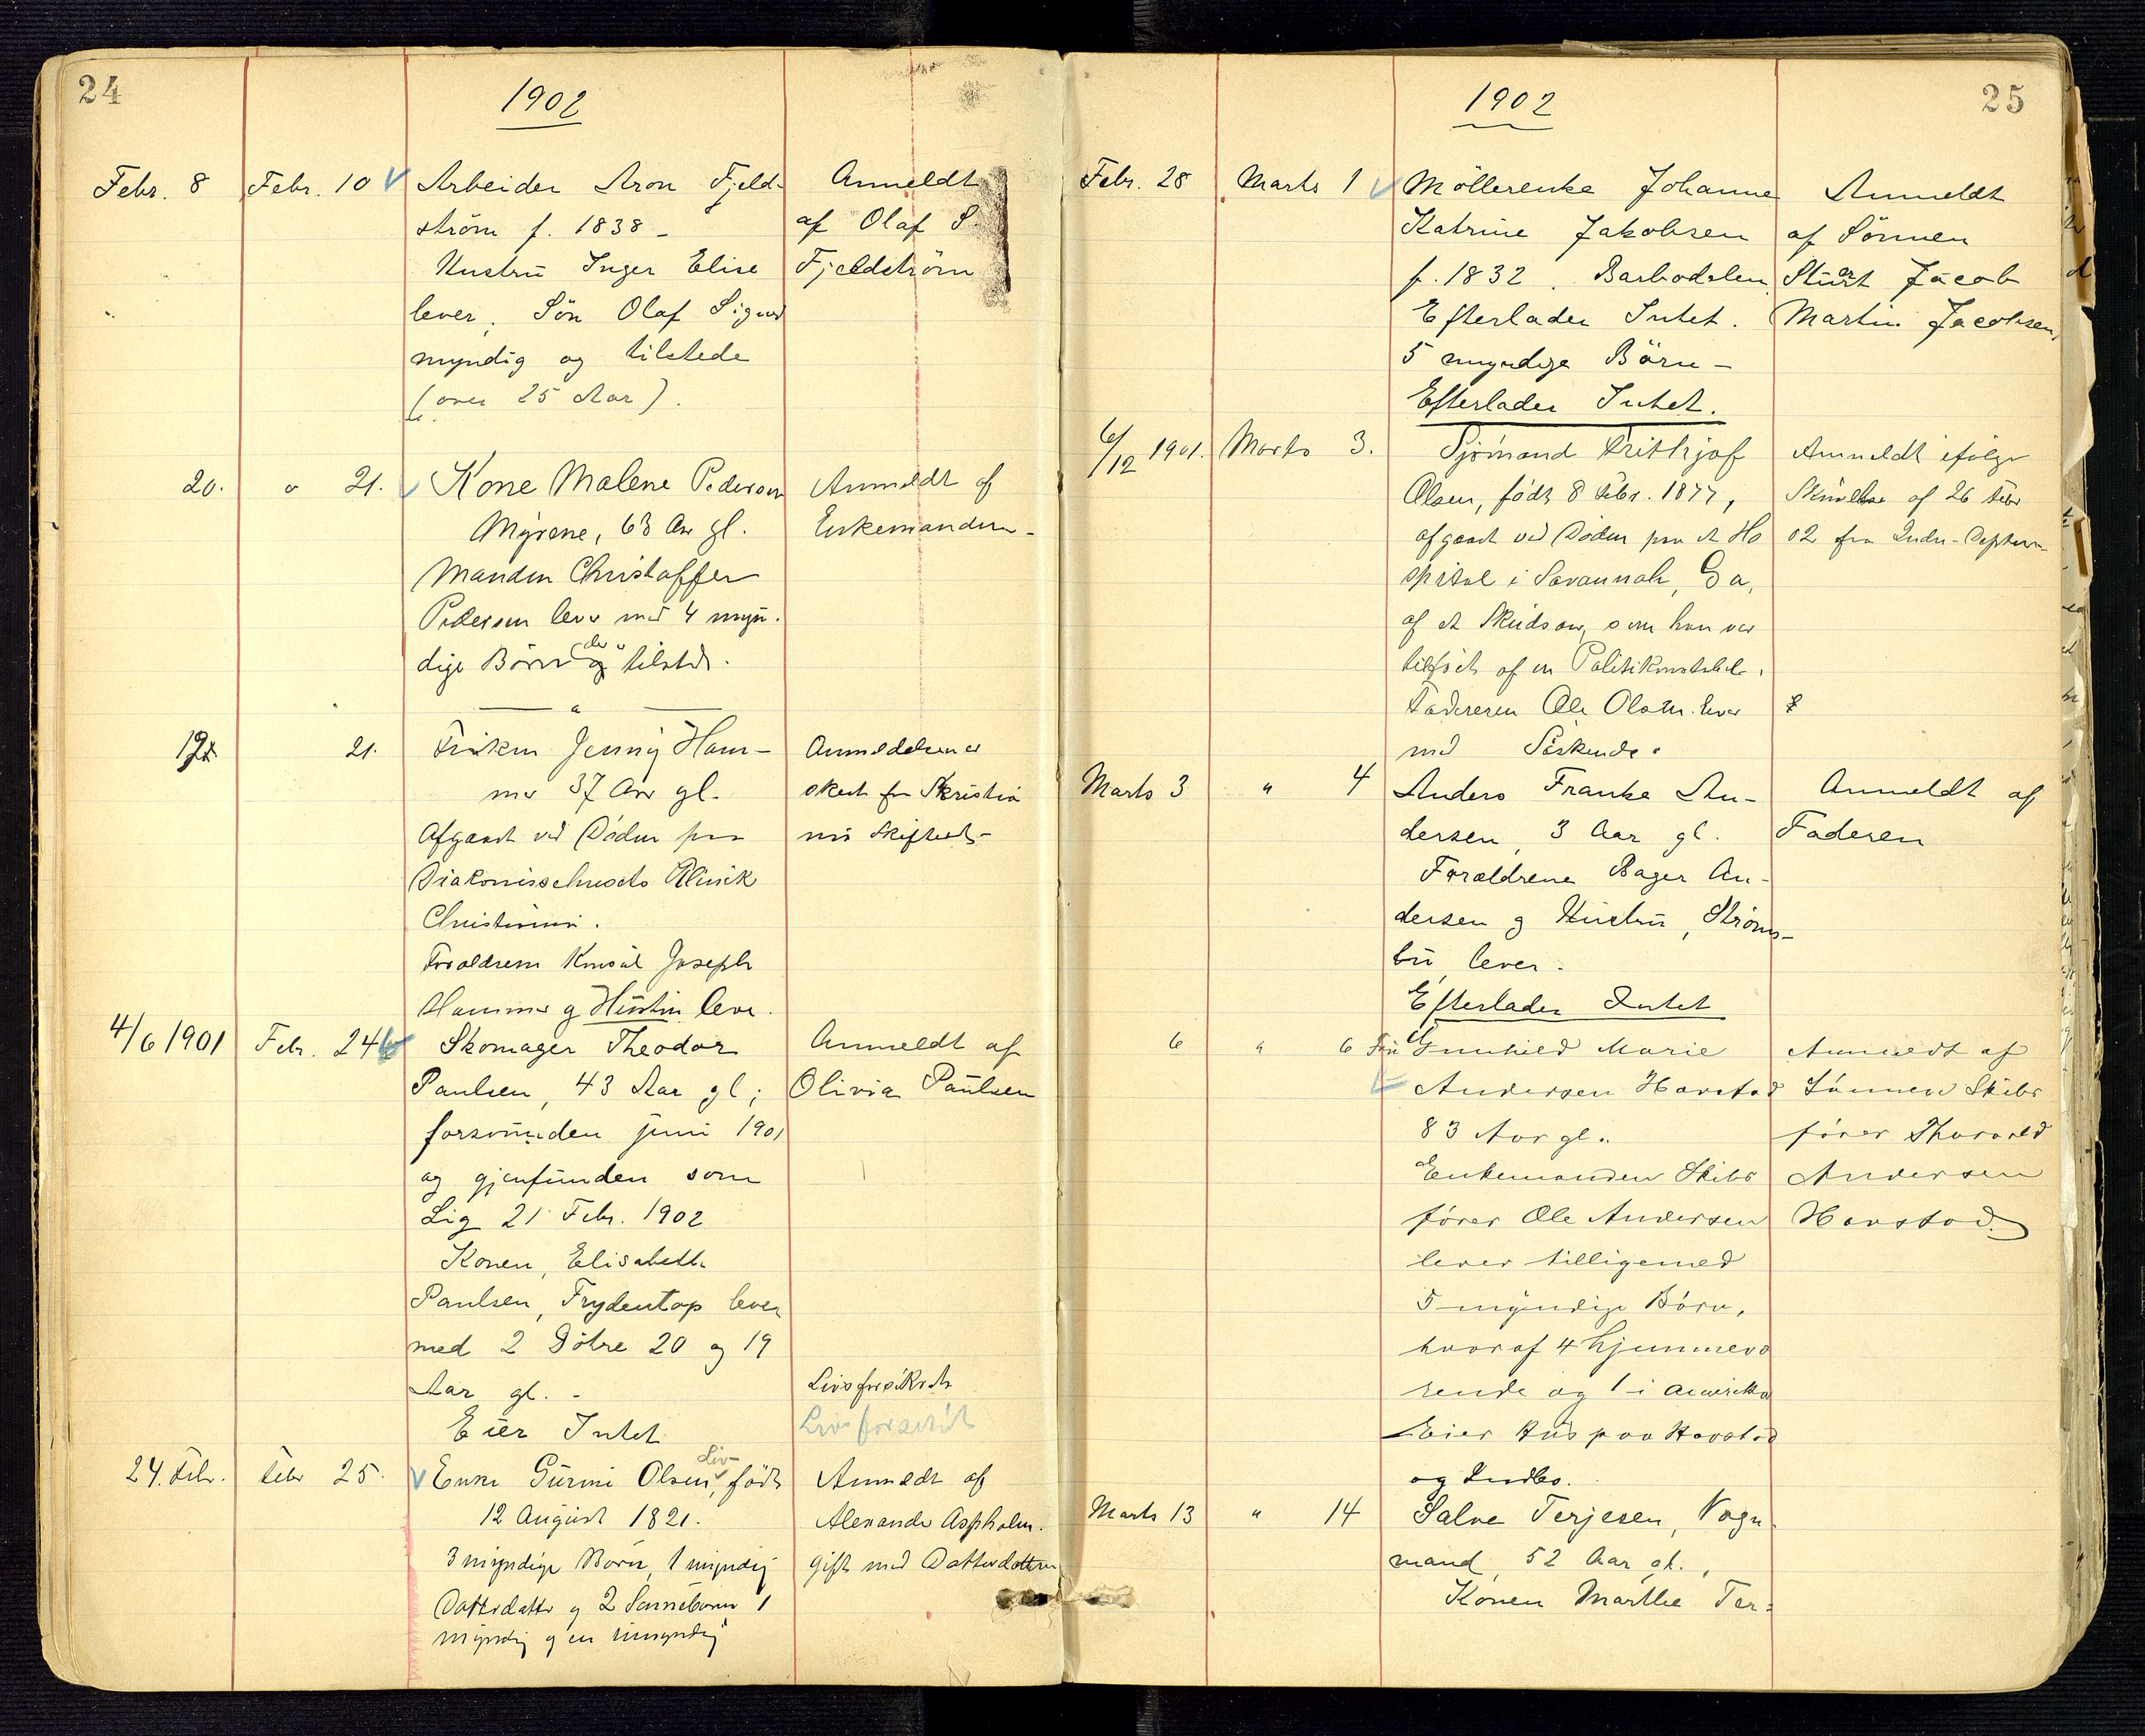 24
1902
Febr. 8 Febr. 10 Arbeider Aron Fjeld-
ström f. 1838 –
Hustru Inger Elise
lever. Sön Olaf Sigurd
myndig og tilstede
(over 25 Aar).
Anmeldt
af Olaf S.
Fjeldström
20. " 21. Kone Malene Pedersen
Myrene, 63 Aar gl.
Manden Christoffer
Pedersen lever med 4 myn-
dige Börn der er tilstede.
Anmeldt af
Enkemanden –
21. Frøken Jenny Ham-
mer 37 Aar gl.
Afgaaet ved Døden paa
Diakonissehusets Klinik
Christiania.
Forældrene Konsul Joseph
Hammer og Hustru lever.
Anmeldelsen er
skeet fra Kristia
nia Skifteret –
4/6 1901 Febr. 24 Skomager Theodor
Paulsen, 43 Aar gl;
forsvunden juni 1901
og gjenfunden som
Lig 21 Febr. 1902
Konen, Elisabeth
Paulsen, Frydentop lever
med 2 Döttre 20 og 19
Aar gl. –
Eier Intet
Anmeldt af
Olivia Paulsen
Livsforsikret
Livsforsikret
24. Febr. Febr 25. Enke Gurine Olsen, Liv- født
12 August 1821.
3 myndige Børn, 1 myndig
Datterdatter og 2 Sønnebørn 1
myndig og en umyndig
Anmeldt af
Alexander Aspholm.
gift med Datterdatteren
25
1902
Febr. 28 Marts 1 Möllerenke Johanne
Katrine Jakobsen
f. 1832. Barbodalen
Efterlader Intet.
5 myndige Börn –
Efterlader Intet.
Anmeldt
af Sönnen
Stuert Jacob
Martin Jacobsen
6/12 1901. Marts 3. Sjømand Frithjof
Olsen, født 8 Febr. 1877,
afgaaet ved Døden paa et Ho
spital i Savannah, Ga,
af et Skudsaar, som han var
tilføiet af en Politikonstabel.
Faderen Ole Olsen lever
med Søskende.
Anmeldt ifølge
Skrivelse af 26 Febr
02 fra Indre-Depten
Marts 3 " 4 Anders Franke An-
dersen, 3 Aar gl.
Forældrene Bager An-
dersen og Hustru, Ströms-
bu lever.
Efterlader Intet
Anmeldt af
Faderen
6 " 6 Fru Gunhild Marie
Andersen Havstad
83 Aar gl.
Enkemanden Skibs
fører Ole Andersen
lever tilligemed
5 myndige Børn,
hvoraf 4 hjemmevæ
rende og 1 i Amerika
Eier Hus paa Havstad
og Indbo.
Anmeldt af
Sønnen Skibs
fører Thorvald
Andersen
Havstad
Marts 13 " 14 Salve Terjesen, Vogn-
mand, 52 Aar gl.,
Konen Marthe Ter-